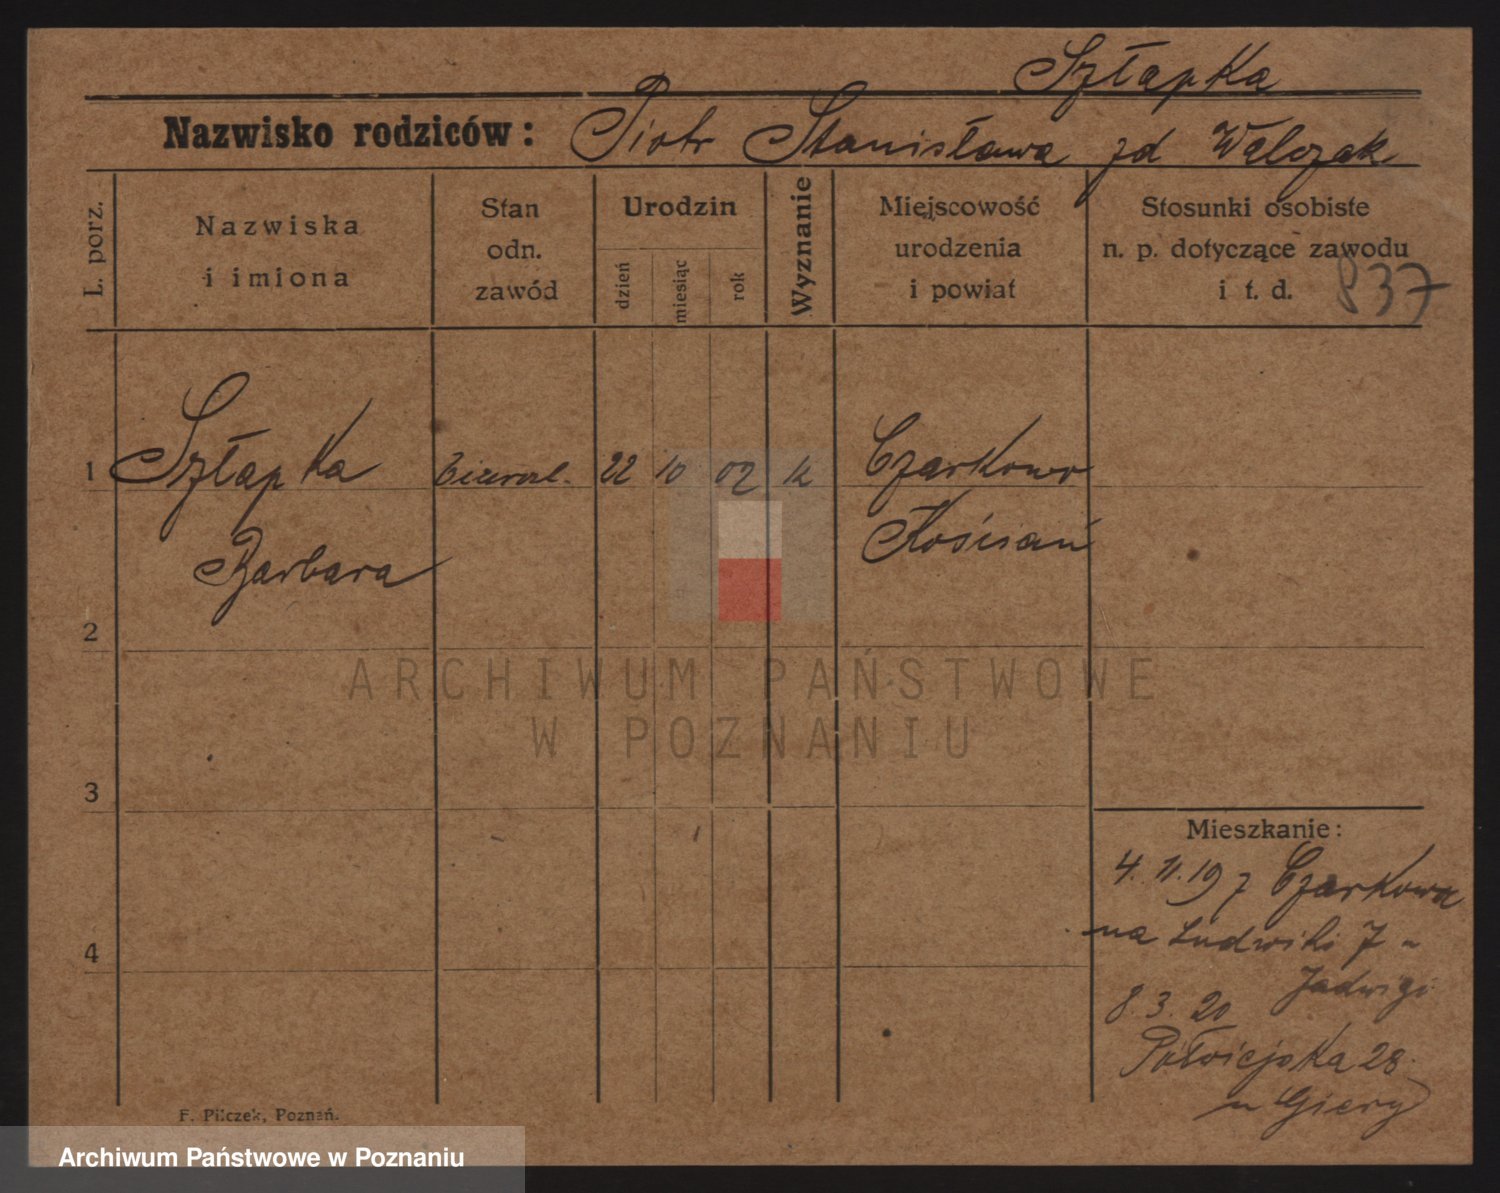 Szłapka
Nazwisko rodziców: Piotr Stanisława zd Walczak
L. porz.
Nazwiska
i imiona
Stan
odn.
zawód
Urodzin
dzień
miesiąc
rok
Wyznanie
Miejscowość
urodzenia
i powiat
Stosunki osobiste
n. p. dotyczące zawodu
i t. d.
837
1 Szłapka 22 10 02 k Czarkowo
Kościań
Barbara
2
3
4
Mieszkanie:
4. 11. 19 z Czarkowa
na Ludwiki 7
Jadwigi
8. 3. 20
Półwiejska 28
u Giery
F. Pilczek, Poznań.
ARCHIWUM PAŃSTWOWE
W POZNANIU
Archiwum Państwowe w Poznaniu